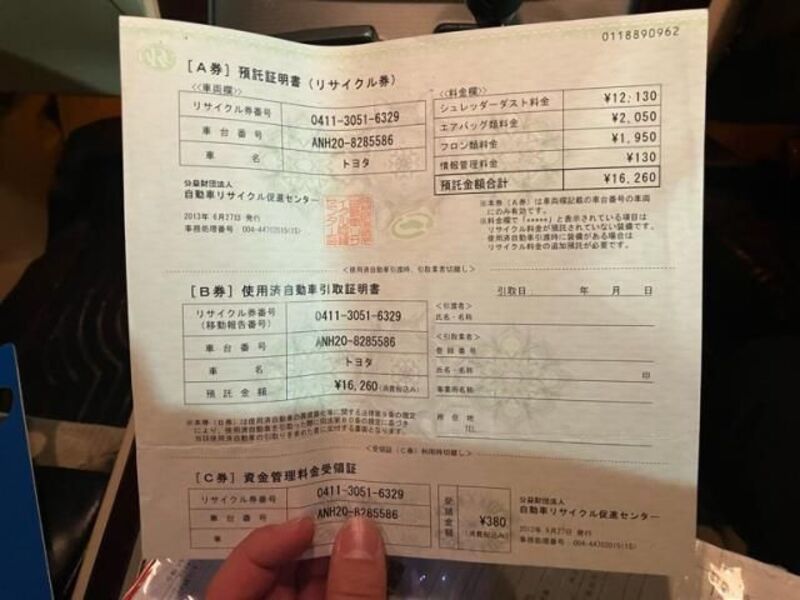 0118890962
[A券] 預託証明書(リサイクル券)
<<車両欄>>
リサイクル券番号 0411-3051-6329
車台番号 ANH20-8285586
車名 トヨタ
<<料金欄>>
シュレッダーダスト料金 ¥12,130
エアバッグ類料金 ¥2,050
フロン類料金 ¥1,950
情報管理料金 ¥130
預託金額合計 ¥16,260
公益財団法人
自動車リサイクル促進センター
2013年 6月27日 発行
事務処理番号 004-44702015(1S)
※本券(A券)は車両欄記載の車台番号の車両
にのみ有効です。
※料金欄で「*****」と表示されている項目は
リサイクル料金が預託されていない装備です。
使用済自動車引渡時に装備がある場合は
リサイクル料金の追加預託が必要です。
<使用済自動車引渡時、引取業者切離し>
[B券] 使用済自動車引取証明書
引取日: 年 月 日
リサイクル券番号
(移動報告番号) 0411-3051-6329
車台番号 ANH20-8285586
車名 トヨタ
預託金額 ¥16,260(消費税込み)
<引渡者>
氏名・名称
<引取業者>
登録番号
氏名・名称 印
事業所名称
所在地
TEL
※本券(B券)は使用済自動車の再資源化等に関する法律第9条の規定
により、使用済自動車を引取った際に同法第80条の規定に基づき
当該使用済自動車の引取りを求めた者に交付する書面となります。
<受領証(C券)利用時切離し>
[C券] 資金管理料金受領証
リサイクル券番号 0411-3051-6329
車台番号 ANH20-8285586
車
受領金額 ¥380
(消費税込み)
公益財団法人
自動車リサイクル促進センター
6月27日 発行
事務処理番号 004-44702015(1S)